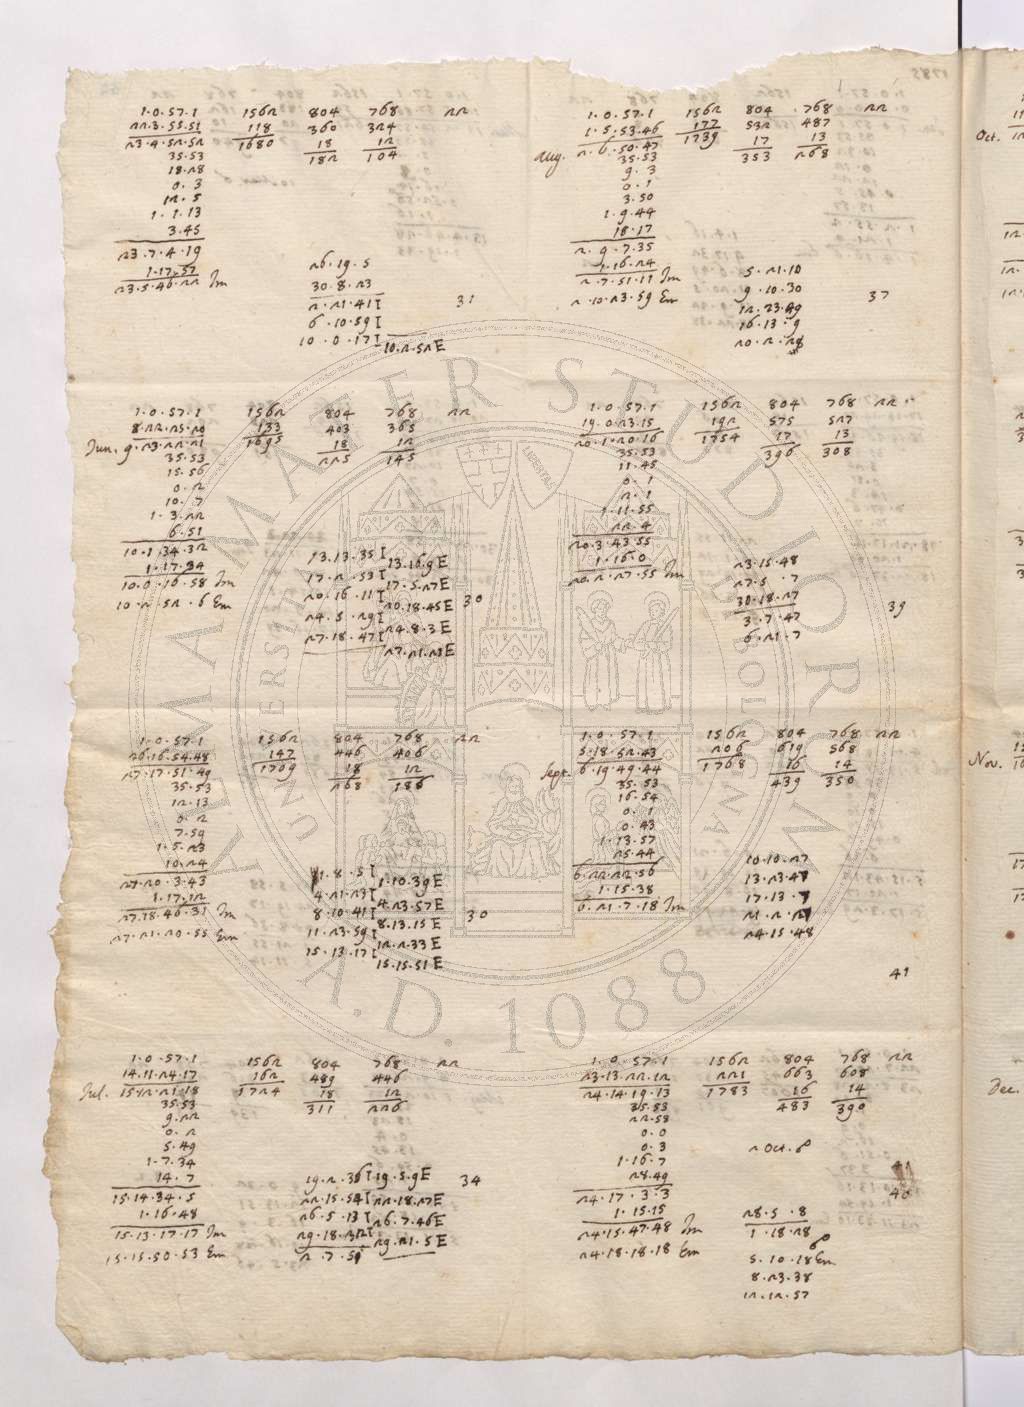 1785
1.0.57.1 1562 804 768 22
22.3.55.51 118 360 324
23.4.52.52 1680 18 12
35.53 182 104
18.28
0.3
12.5
1.1.13
3.45
23.7.4.19
1.17.57
23.5.46.22 Im
26.19.5
30.8.23
2.21.41 I 31
6.10.59 I
10.0.17 I 10.2.52 E
1.0.57.1 1562 804 768 22
8.22.25.20 133 403 365
Jun. 9.23.22.21 1695 18 12
35.53 225 145
15.56
0.2
10.7
1.3.22
6.51
10.1.34.32
1.17.34
10.0.16.58 Im
10.2.52.6 Em
13.13.35 I 13.16.9 E
17.2.53 I 17.5.27 E
20.16.11 I 20.18.45 E 30
24.5.29 I 24.8.3 E
27.18.47 I 27.21.21 E
1.0.57.1 1562 804 768 22
26.16.54.48 147 446 406
27.17.51.49 1709 18 12
35.53 268 186
12.13
0.2
7.59
1.5.23
10.24
27.20.3.43
1.17.12
27.18.46.31 Im
27.21.20.55 Em
1.8.5 I 1.10.39 E
4.21.23 I 4.23.57 E
8.10.41 I 8.13.15 E 30
11.23.59 I 12.2.33 E
15.13.17 I 15.15.51 E
1.0.57.1 1562 804 768 22
14.11.24.17 162 489 446
Jul. 15.12.21.18 1724 18 12
35.53 311 226
9.22
0.2
5.49
1.7.34
14.7
15.14.34.5
1.16.48
15.13.17.17 Im
15.15.50.53 Em
19.2.36 I 19.5.9 E 34
22.15.54 I 22.18.27 E
26.5.13 I 26.7.46 E
29.18.32 I 29.21.5 E
2.7.51
1.0.57.1 1562 804 768 22
1.5.53.46 177 532 487
Aug. 2.6.50.47 1739 17 13
35.53 353 268
9.3
0.1
3.50
1.9.44
18.17
2.9.7.35
1.16.24
2.7.51.11 Im
2.10.23.59 Em
5.21.10
9.10.30 37
12.23.49
16.13.9
20.2.28
1.0.57.1 1562 804 768 22
19.0.23.15 192 575 527
20.1.20.16 1754 17 13
35.53 396 308
11.45
0.1
2.1
1.11.55
22.4
20.3.43.55
1.16.0
20.2.27.55 Im
23.15.48
27.5.7
30.18.27 39
3.7.47
6.21.7
1.0.57.1 1562 804 768 22
5.18.52.43 206 619 568
Sept. 6.19.49.44 1768 16 14
35.53 439 350
16.54
0.1
0.43
1.13.57
25.44
6.22.22.56
1.15.38
6.21.7.18 Im
10.10.27
13.23.47
17.13.7
21.2.27
24.15.48
41
1.0.57.1 1562 804 768 22
23.13.22.12 221 663 608
24.14.19.13 1783 16 14
35.53 483 390
22.58
0.0
0.3 2 Oct.
1.16.7
28.49 40
24.17.3.3
1.15.15
24.15.47.48 Im
24.18.18.18 Em
28.5.8
1.18.28
5.10.18 Em
8.23.38
12.12.57
Oct.
Nov.
Dec.
ALMA MATER STUDIORUM
A.D. 1088